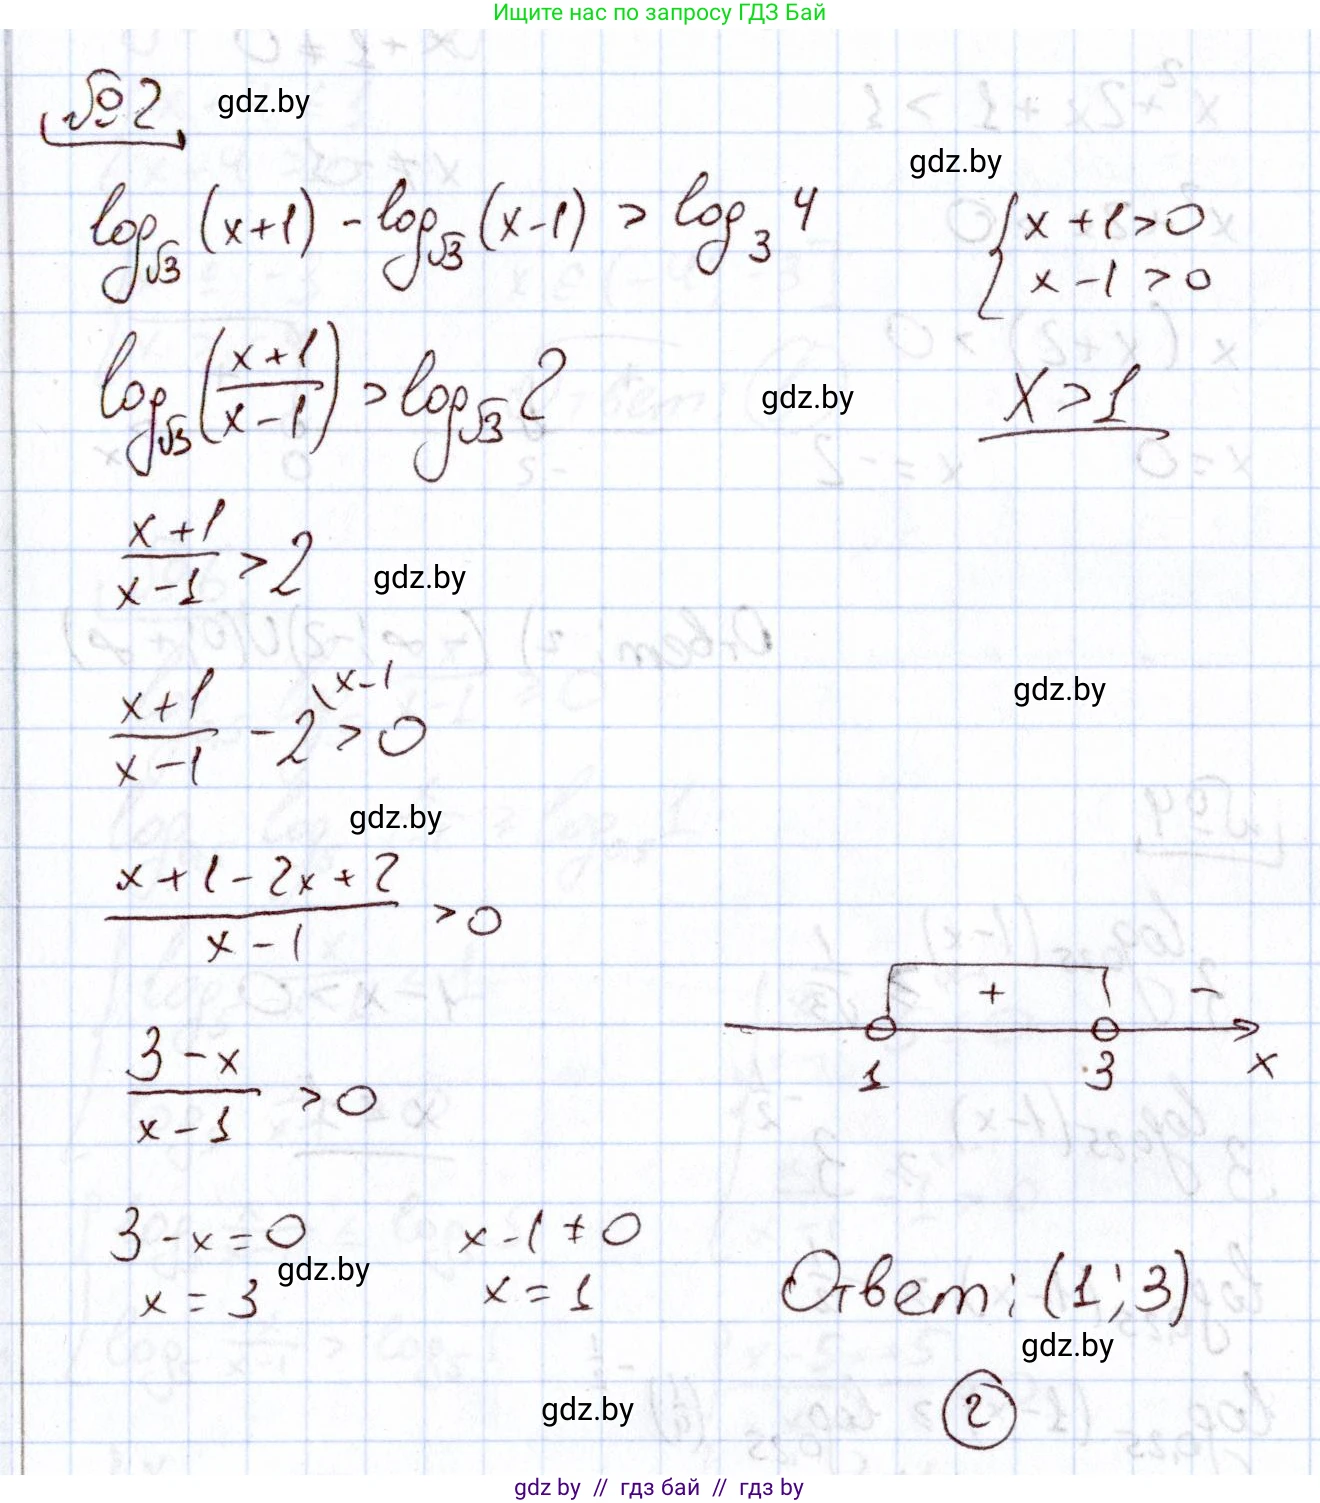 Ищите нас по запросу ГДЗ Бай
№2 gdz.by
gdz.by
log_√3 (x+1) - log_√3 (x-1) > log_3 4
{ x+1>0
x-1>0
log_√3 ((x+1)/(x-1)) > log_√3 2
gdz.by
x>1
(x+1)/(x-1) > 2
gdz.by
(x+1)/(x-1) - 2 \x-1 > 0
gdz.by
gdz.by
(x+1-2x+2)/(x-1) > 0
(3-x)/(x-1) > 0
+ -
1 3 x
3-x=0 x-1≠0
gdz.by
x=3 x=1
Ответ: (1;3)
gdz.by
gdz.by
2
gdz by // гдз бай // gdz by